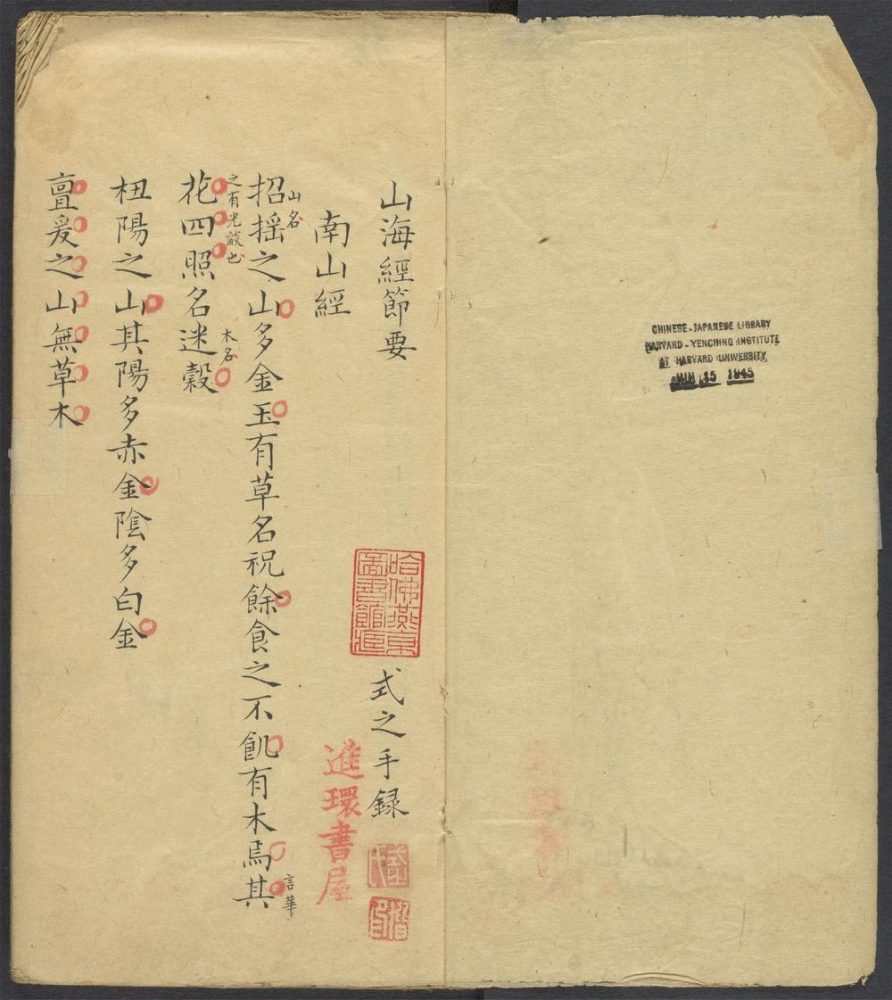 CHINESE-JAPANESE LIBRARY
HARVARD-YENCHING INSTITUTE
AT HARVARD UNIVERSITY
15 1945
山海經節要
式之手録
哈佛燕京
圖書館
南山經
進環書屋
招摇之山多金玉有草名祝餘食之不飢有木焉其
山名
言華
之有光燄也
花四照名迷榖
木名
杻陽之山其陽多赤金陰多白金
亶爰之山無草木